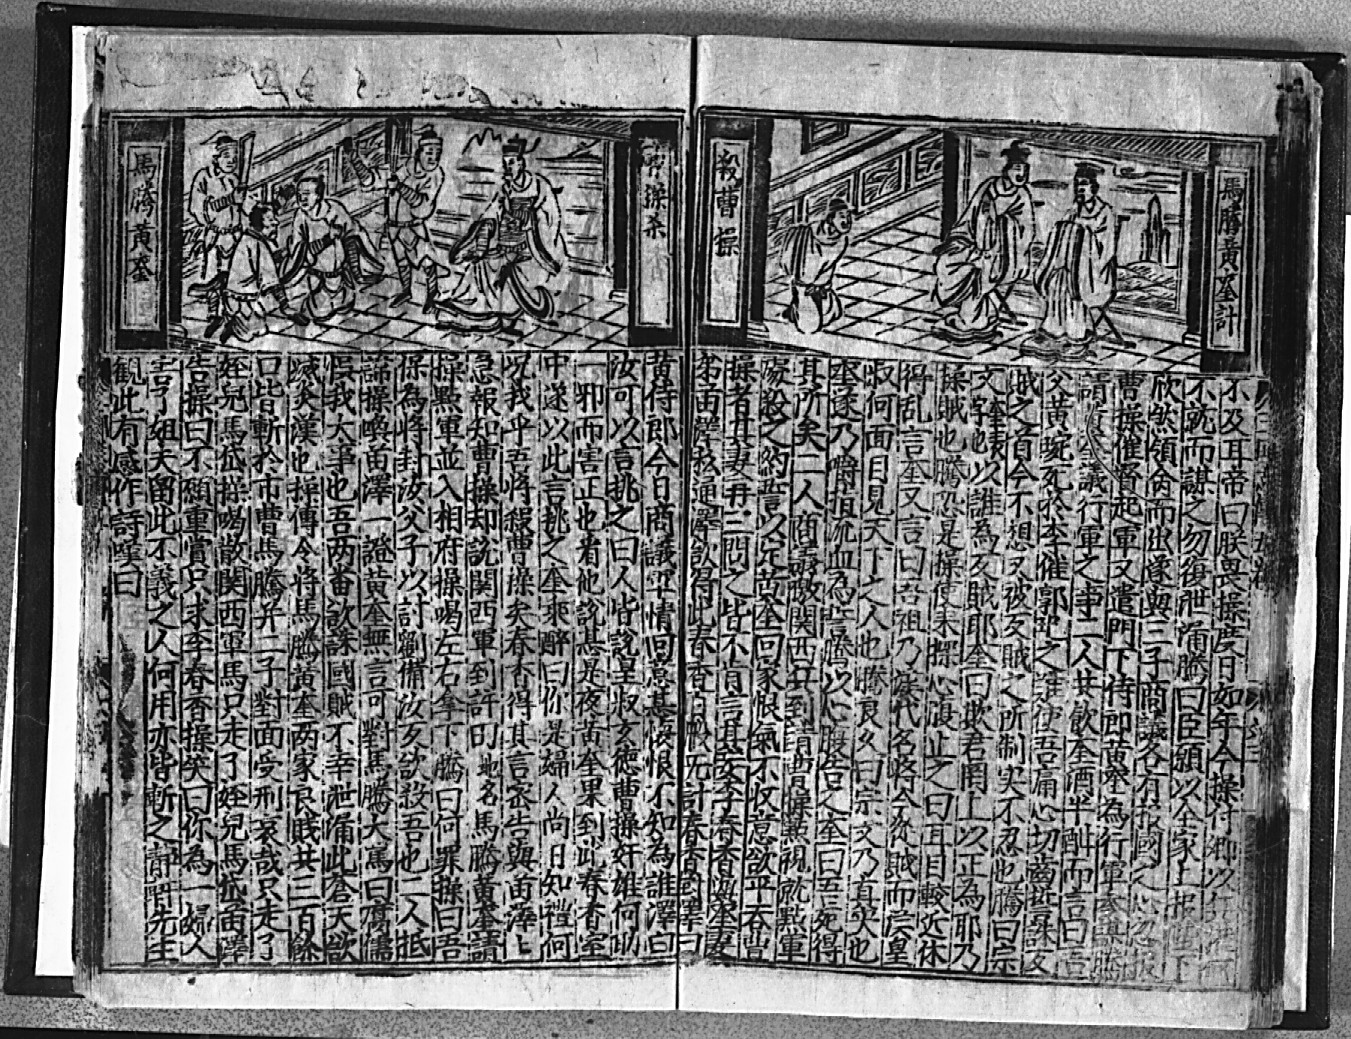 馬騰黃奎計
殺曹操
不及耳帝曰朕畏操度日如年今操付卿以
不就而謀之勿復泄漏騰曰臣願以全家上報陛下
欣然領命而出遂與三子商議各有報國之心忽報
曹操催督起軍又遣門下侍郎黃奎為行軍參謀騰
請黃奎議行軍之事二人共飲奎酒半酣而言曰吾
父黃琬死於李催郭汜之難使吾痛心切齒誓誅反
賊之首今不想又被反賊之所制实不忍也騰曰宗
文奎汝以誰為反賊耶奎曰欺君罔上以正為耶乃
操賊也騰恐是操使來探心浸止之曰耳目較近休
得乱言奎又言曰吾祖乃漢代名將今從賊而害皇
叔何面目見天下之人也騰良久曰宗文乃真实也
奎遂乃嚼指流血為誓騰以心腹告之奎曰吾死得
其所矣二人商議檄関西兵到請曹操點視就點軍
處殺之約誓以定黃奎回家恨氣不收意欲平吞曹
操者其妻再三問之皆不肯言其妾李春香與奎妻
弟苗澤私通澤欲得此春香百般无計春香對澤曰
曹操杀
馬騰黃奎
黃侍郎今日商議軍情回意甚懷恨不知為誰澤曰
汝可以言挑之曰人皆說皇叔玄德曹操奸雄何助
一邪而害正也看他說甚是夜黃奎果到此春香室
中遂以此言挑之奎乘醉曰你是婦人尚且知禮何
况我乎吾將殺曹操矣春香得其言密告與苗澤澤
急報知曹操却說関西軍到許田地名馬騰黃奎請
操點軍並入相府操喝左右拿下騰曰何罪操曰吾
保為將封汝父子以討劉備汝反欲殺吾也二人抵
諱操喚苗澤一證黃奎無言可對馬騰大罵曰腐儒
悞我大事也吾两番欲誅國賊不幸泄漏此蒼天欲
滅炎漢也操傳令將馬騰黃奎两家良賤共三百餘
口皆斬於市曹馬騰并二子對面受刑哀哉只走了
姪兒馬岱操喝散関西軍馬只走了姪兒馬岱苗澤
告操曰不願重賞只求李春香操笑曰你為一婦人
害了姐夫留此不義之人何用亦皆斬之靜軒先生
観此有感作詩嘆曰